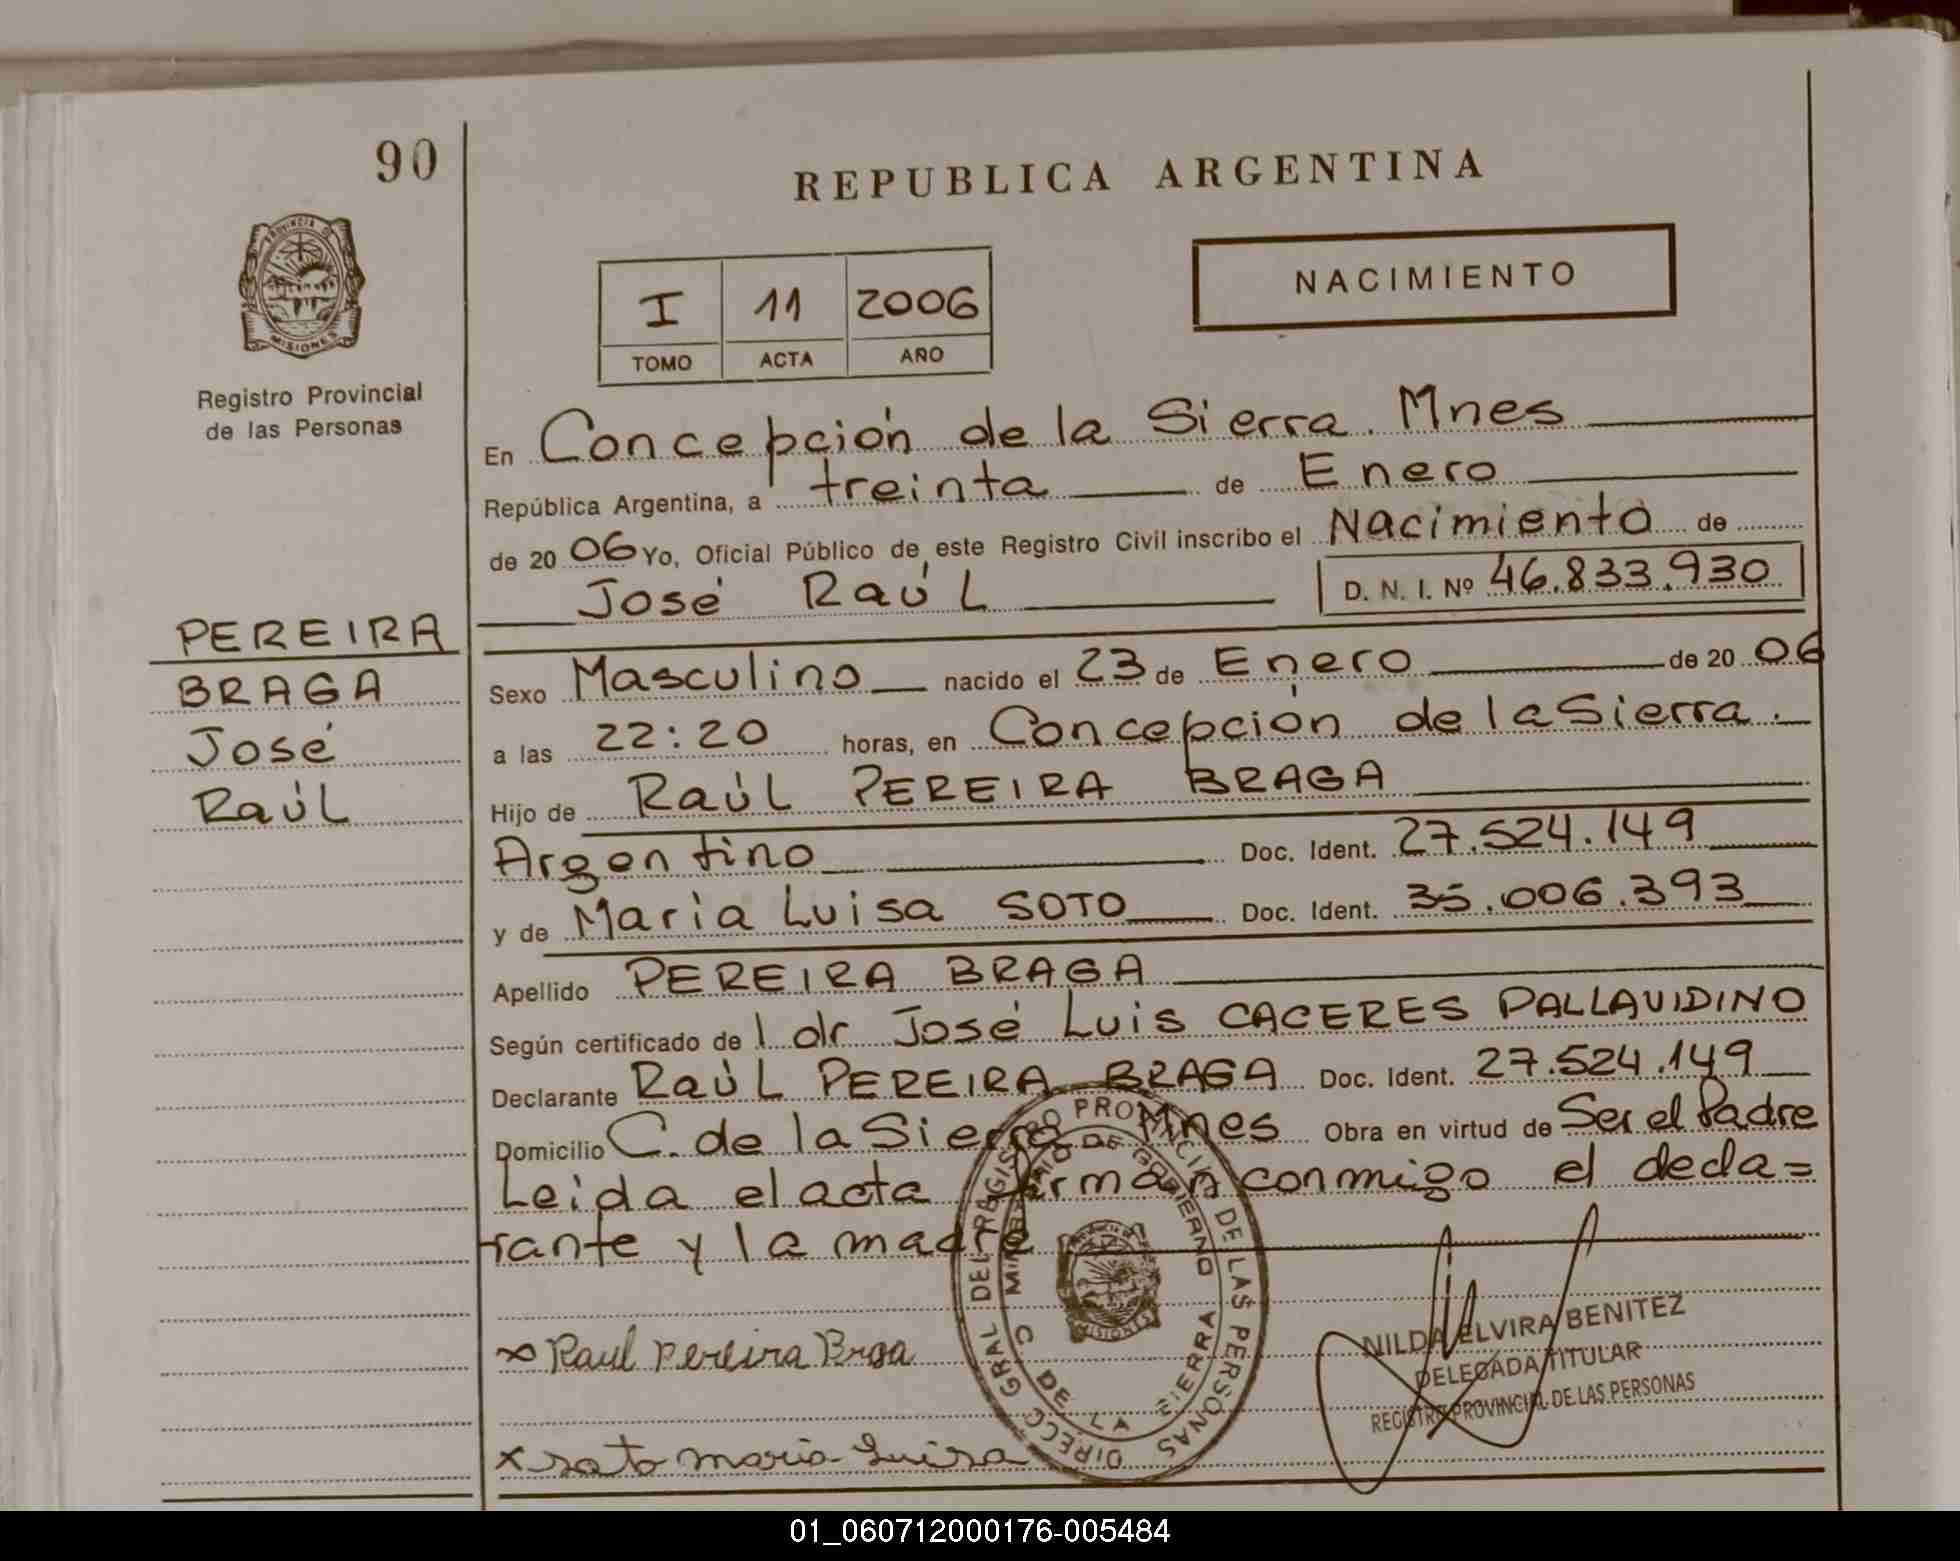 90
REPUBLICA ARGENTINA
PROVINCIA DE
MISIONES
Registro Provincial
de las Personas
NACIMIENTO
I 11 2006
TOMO ACTA AÑO
En Concepción de la Sierra. Mnes
República Argentina, a treinta de Enero
de 2006 Yo, Oficial Público de este Registro Civil inscribo el Nacimiento de
José Raúl D. N. I. Nº 46.833.930
PEREIRA
BRAGA
José
Raúl
Sexo Masculino nacido el 23 de Enero de 2006
a las 22:20 horas, en Concepción de la Sierra.
Hijo de Raúl PEREIRA BRAGA
Argentino Doc. Ident. 27.524.149
y de María Luisa SOTO Doc. Ident. 35.006.393
Apellido PEREIRA BRAGA
Según certificado de l dr José Luis CACERES PALLAVIDINO
Declarante Raúl PEREIRA BRAGA Doc. Ident. 27.524.149
Domicilio C. de la Sierra Mnes Obra en virtud de Ser el Padre
Leida el acta firman conmigo el decla=
rante y la madre
x Raul Pereira Brga
x soto maria Luisa
DIRECC GRAL DEL REGISTRO PROVINCIAL DE LAS PERSONAS
MINISTERIO DE GOBIERNO
C DE LA SIERRA
MISIONES
NILDA ELVIRA BENITEZ
DELEGADA TITULAR
REGISTRO PROVINCIAL DE LAS PERSONAS
01_060712000176-005484